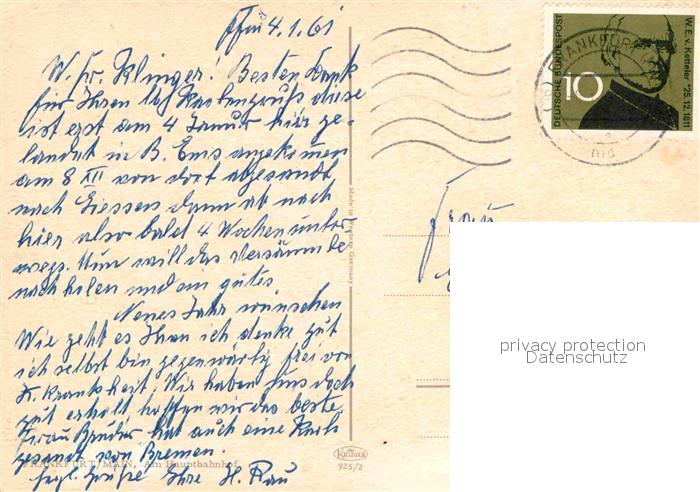 Ffm 4.1.61
W. Fr. Klinger! Besten Dank
für Ihren lb Kartengruß diese
ist erst am 4 Januar hier ge-
landet in B. Ems angekommen
am 8 XII von dort abgesandt
nach Giessen dann ab nach
hier also bald 4 Wochen unter-
wegs. Nun will das Versäumte
nachholen und ein gutes
Neues Jahr wünschen
Wie geht es Ihnen ich denke gut
ich selbst bin gegenwärtig frei von
Krankheit. Wir haben uns doch
gut erholt hoffen wir das beste,
Frau Bruder hat auch eine Karte
gesandt von Bremen.
FRANKFURT/MAIN, Am Hauptbahnhof
Ihre H. Rau
Made in Western Germany
KRÜGER
925/2
Frau
DEUTSCHE BUNDESPOST
10
W.E. v. Ketteler *25.12.1811
FRANKFURT
privacy protection
Datenschutz